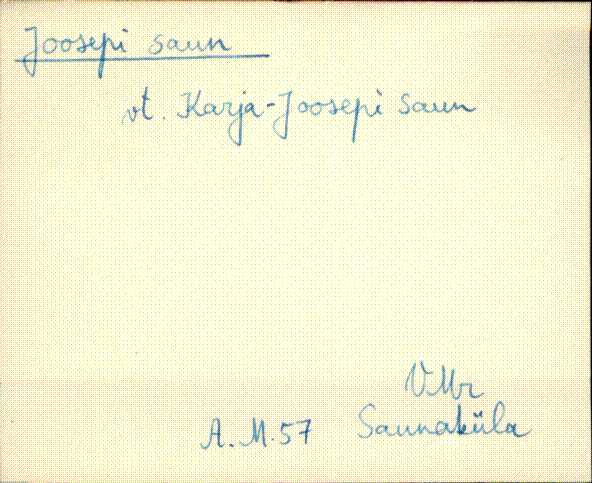 Joosepi saun
vt. Karja-Joosepi saun
VMr
A.M.57 Saunaküla